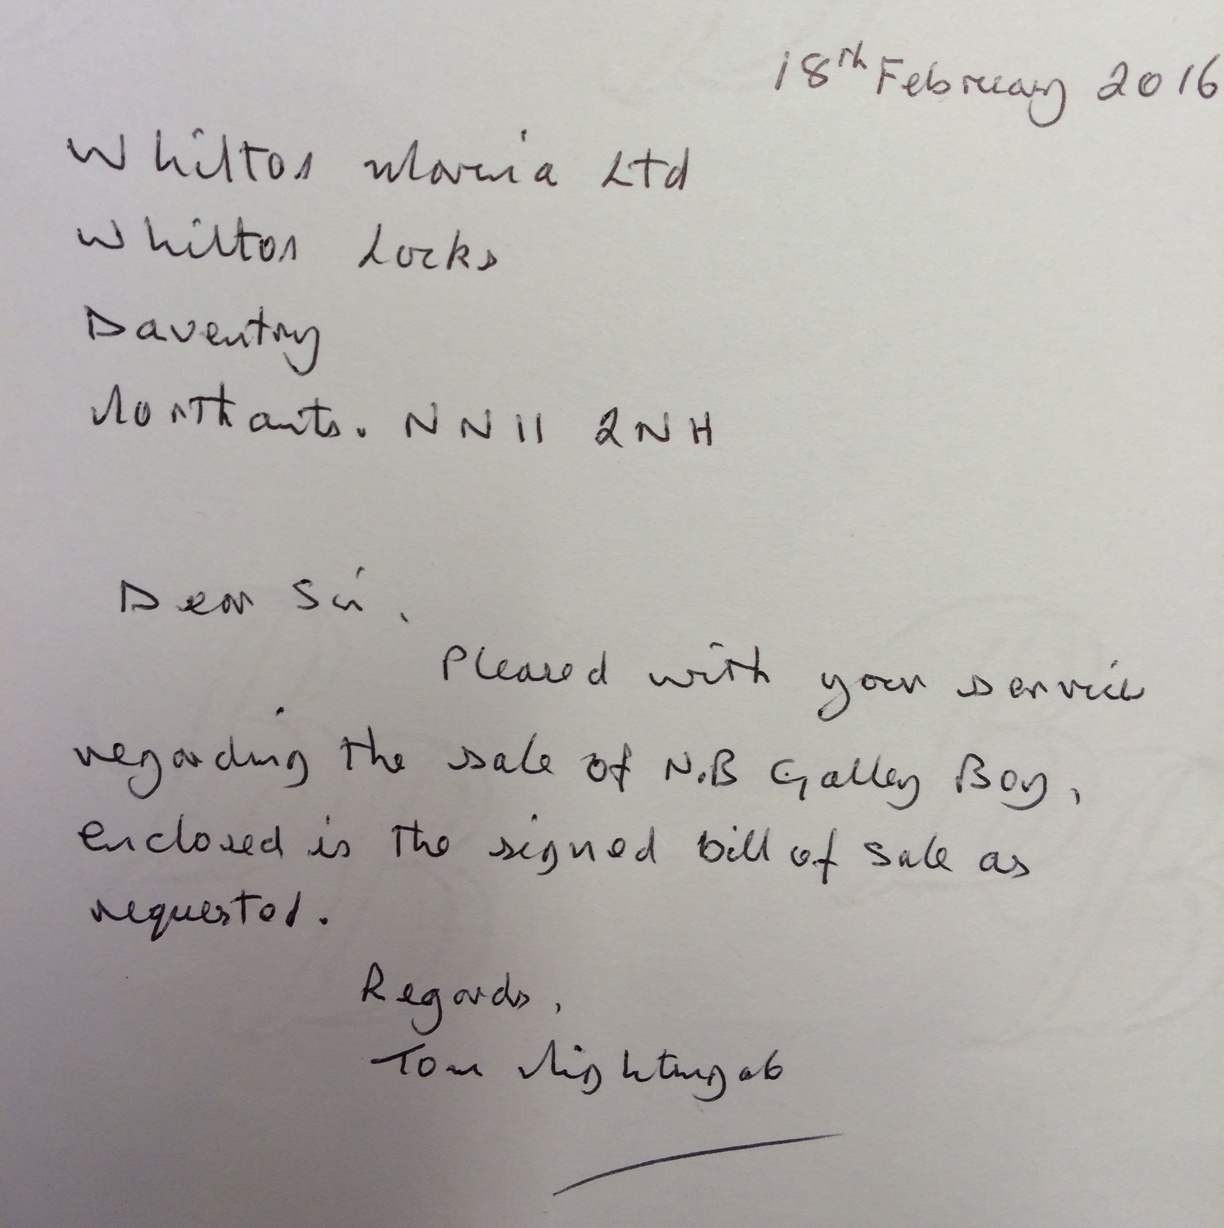 18th February 2016
Whilton Marina Ltd
Whilton Locks
Daventry
Northants. NN11 2NH
Dear Sir,
Pleased with your service
regarding the sale of N.B Galley Boy,
enclosed is the signed bill of sale as
requested.
Regards,
Tom Nightingale